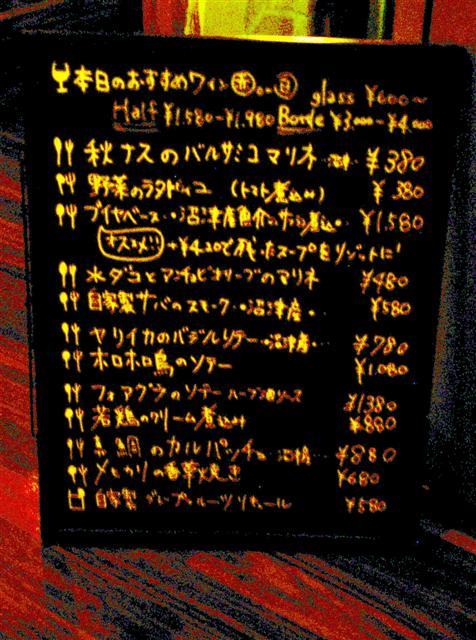 本日のおすすめワイン 赤 or 白 glass ¥600〜
Half ¥1.580-¥1.980 Bottle ¥3.000〜¥4.000
秋ナスのバルサミコマリネ ¥380
野菜のラタトゥイユ (トマト煮込み) ¥380
ブイヤベース・・沼津産魚介の 煮込 ¥1.580
オススメ!! +¥420で残ったスープをリゾットに!
水ダコとアンチョビオリーブのマリネ ¥480
自家製サバのスモーク・・沼津産・・ ¥580
ヤリイカのバジルソテー・沼津産・・ ¥780
ホロホロ鳥のソテー ¥1.080
フォアグラのソテー ソース ¥1380
若鶏のクリーム煮込み ¥880
真鯛のカルパッチョ ¥880
メヒカリの香草焼き ¥680
自家製グレープフルーツリキュール ¥580